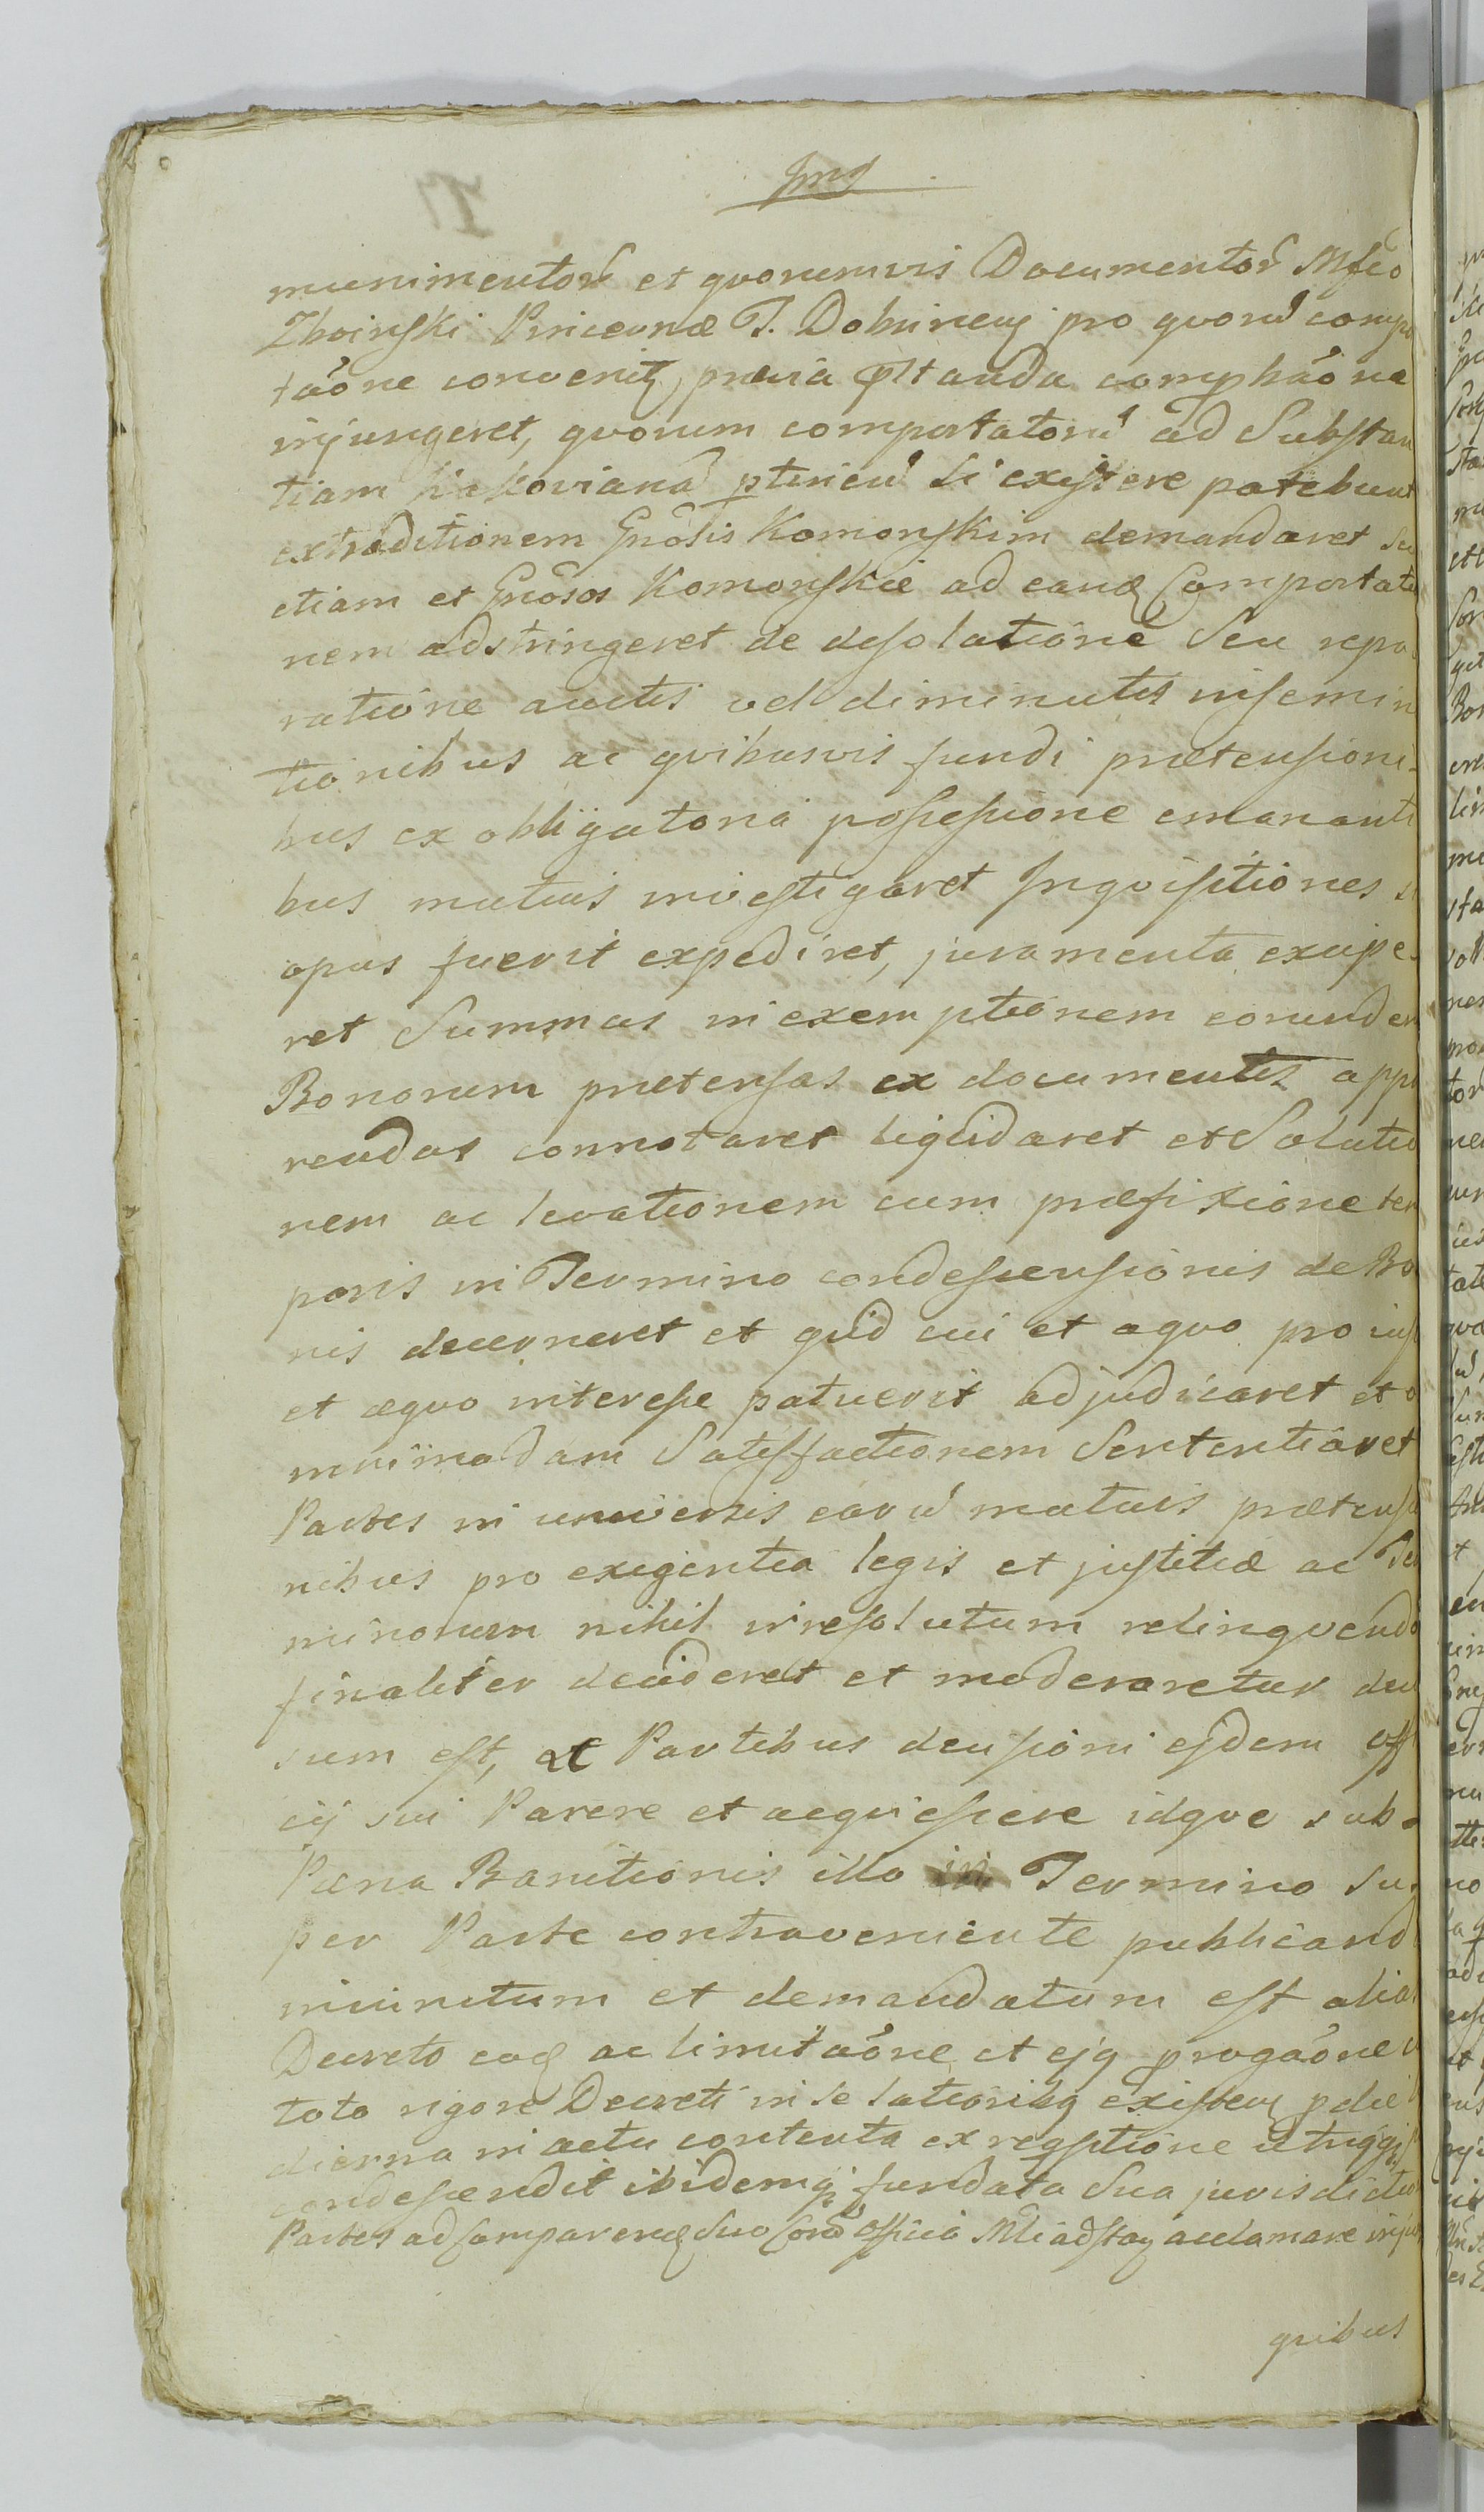 munimentorũ et qvorumvis Documentorũ Mfco
Zboinski Pincernæ T. Dobrinen pro qvorũ compo
tãone convenit, prævia pltanda comphãone
injungeret, qvorum comportatorũ ad Substan
tiam Kakovianã ptinen si existere patebunt
extraditionem Gnosis Komorskim demandaret Su
etiam et Gnosos Komorskie ad eand Comportatio
nem adstringeret de desolatione Seu repa
ratione auctis vel diminutis insemin
tionibus ac qvibusvis fundi prætensioni
bus ex obligatoria possessione emananti
bus mutuis investigaret Inqvisitiones si
opus fuerit expediret, juramenta excipe
ret Summas in exemptionem eorundem
Bonorum prætensas ex documentis appa
rendas connotaret liqvidaret et Solutio
nem ac levationem cum præfixione tem
poris in Termino condescensionis de Bo
nis decerneret et qvid cui et aqvo pro jus
et æqvo interesse patuerit adjudicaret et o
mnimodam Satisfactionem Sententiaret
Partes in universis earũ mutuis prætensio
nibus pro exigentia legis et justitiæ ac Ter
minorum nihil irresolutum relinqvendo
finaliter decideret et moderaretur deci
sum est, ac Partibus decisioni ejdem Offi
cij sui Parere et acqviescere idqve sub
Pæna Banitionis illo in Termino Su
per Parte contraveniente publicand
injunctum et demandatum est alias
Decreto eod ac limitãone et ejq prorogãone
toto rigore Decreti in se lationibq existen p die
dierna in actu contenta ex reqsitione utriqq
condescendit ibidemq fundata Sua jurisdictio
Partes ad Comparend Suo corã Officio acclamare inju
qvibus